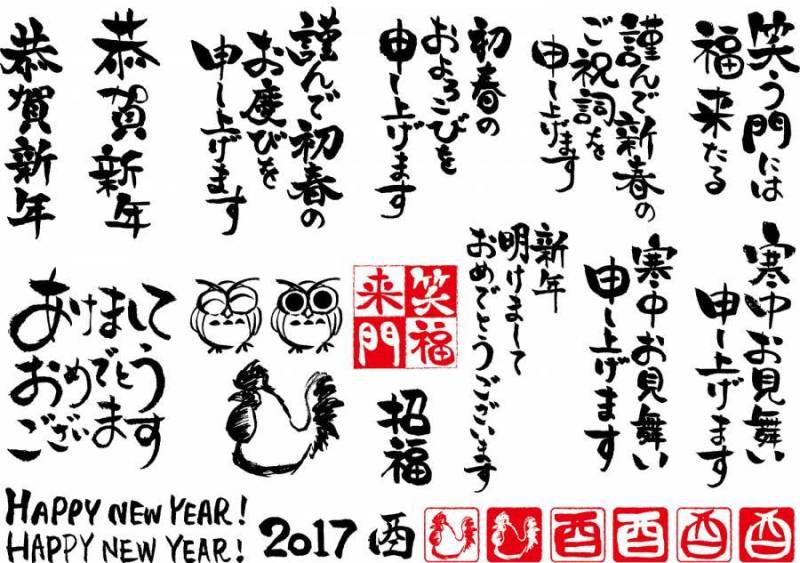 笑う門には
福来たる
謹んで新春の
ご祝詞を
申し上げます
初春の
およろこびを
申し上げます
謹んで初春の
お慶びを
申し上げます
恭賀新年
恭賀新年
寒中お見舞い
申し上げます
寒中お見舞い
申し上げます
新年
明けまして
おめでとうございます
笑福
来門
招福
あけまして
おめでとう
ございます
HAPPY NEW YEAR!
HAPPY NEW YEAR!
2017 酉
酉
酉
酉
酉